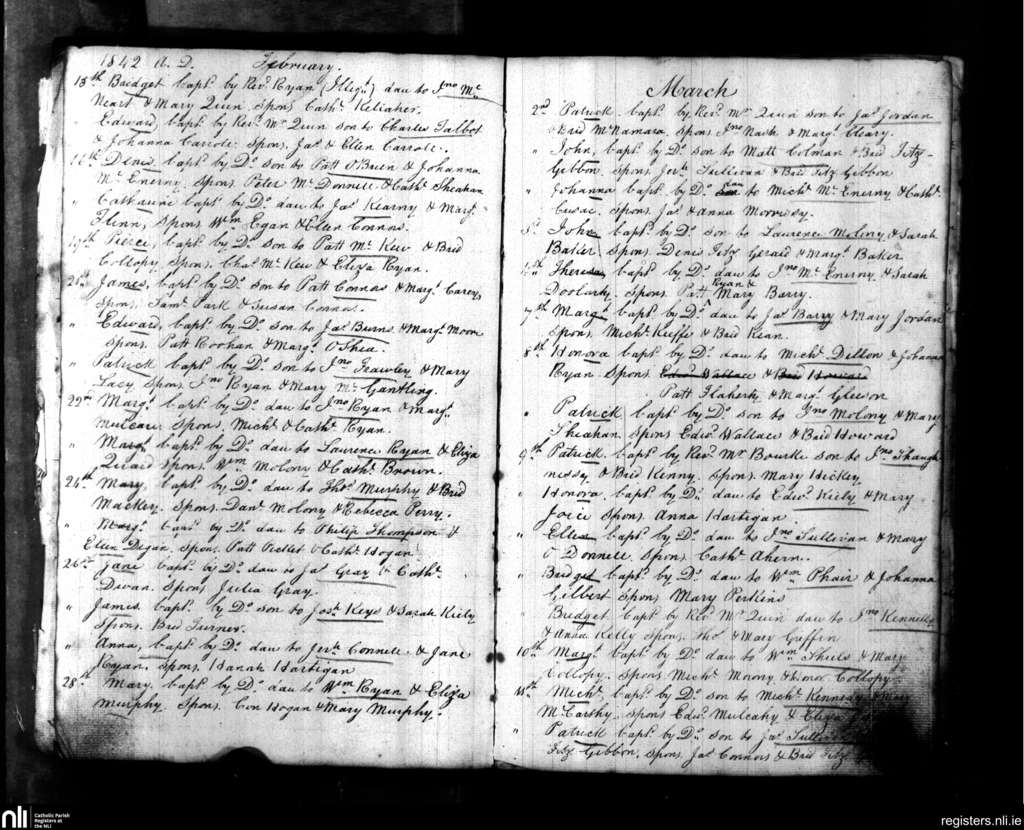 1842 A. D. February.
13th Bridget bapt by Revd Ryan (Illigt) dau to Jno Mc
Neart & Mary Quin spons Cathe Keliaher.
" Edward, bapt by Revd Mr Quin son to Charles Talbot
& Johanna Carroll: spons, Jas & Ellen Carroll.
16th Denis, bapt by Do son to Patt O'Brien & Johanna
Mc Enerny, spons, Peter Mc Donnell & Cathe Sheahan
" Catharine bapt by Do dau to Jas Kearny & Margt
Flinn, spons Wm Egan & Ellen Connors.
19th Pierce, bapt by Do son to Patt Mc Kew & Brid
Collopy spons. Chas Mc Kew & Eliza Ryan.
James, bapt by Do son to Patt Connor & Margt Carey,
spons, Saml Park & Susan Connor.
" Edward, bapt by Do son to Jas Burns & Margt Moon
spons. Patt Roohan & Margt O'Shea.
" Patrick bapt by Do son to Jno Frawley & Mary
Lacy spons Jno Ryan & Mary Mc Gantling.
22nd Margt bapt by Do dau to Jno Ryan & Margt
spons, Michl & Cathe Ryan.
" Margt bapt by Do dau to Laurence Ryan & Eliza
Quaid spons, Wm Molony & Cathe Brown.
24th Mary, bapt by Do dau to Thos Murphy & Brid
Mackey spons. Danl Molony & Rebecca Perry.
" Margt bapt by Do dau to Philip Thompson &
Ellen Degan, spons Patt & Cathe Hogan
26th Jane bapt by Do dau to Jas Gray & Cathe
Divan spons Julia Gray.
" James bapt by Do son to Josh Keys & Sarah Kiely
spons. Brid Turner.
" Anna, bapt by Do dau to Jerh Connell & Jane
Ryan, spons, Hanah Hartigan
28th Mary bapt by Do dau to Wm Ryan & Eliza
Murphy, spons. Con Hogan & Mary Murphy.
March
2nd Patrick bapt by Revd Mr Quin son to Jas Jordan
& Brid McNamara, spons Jno Nash & Margt Cleary.
" John, bapt by Do son to Matt Colman & Brid Fitz-
Gibbon, spons, Jerh Sullivan & Brid Fitz Gibbon
" Johanna bapt by Do dau to Michl Mc Enerny & Cathe
Cusac, spons Jas & Anna Morrissy.
John bapt by Do son to Laurence Molony & Sarah
Baker, spons Denis Fitz Gerald & Margt Baker
Theresa, bapt by Do dau to Jno Mc Enerny & Sarah
spons Patt Ryan & Mary Barry.
7th Margt bapt by Do dau to Jas Barry & Mary Jordan
spons Michl Keeffe & Brid Kean.
8th Honora bapt by Do dau to Michl Dillon & Johanna
Ryan spons Edwd Wallace & Brid Howard
Patt Flaherty & Margt Gleeson
" Patrick bapt by Do son to Jno Molony & Mary
Sheahan spons Edwd Wallace & Brid Howard
9th Patrick, bapt by Revd Mr Bourke son to Jno Shaugh-
nessy, & Brid Kenny. spons, Mary Hickey
" Honora, bapt by Do dau to Edwd Kiely & Mary
Joice spons, Anna Hartigan
" Ellen bapt by Do dau to Jno Sullivan & Mary
O'Donnell spons. Cathe Ahern.
" Bridget bapt by Do dau to Wm Phair & Johanna
Gilbert spons, Mary Perkins
" Bridget bapt by Revd Mr Quin dau to Jno Kennelly
& Anna Kelly spons, Thos & Mary Griffin
10th Margt bapt by Do dau to Wm Shiels & Mary
Collopy, spons Michl & Honor Collopy.
11th Michl, bapt by Do son to Michl Kennedy & Mary
McCarthy, spons Edwd Mulcahy & Eliza
" Patrick bapt by Do son to Jas
Fitz Gibbon, spons Jas Connors & Brid Fitz
nli
Catholic Parish
Registers at
the NLI
registers.nli.ie